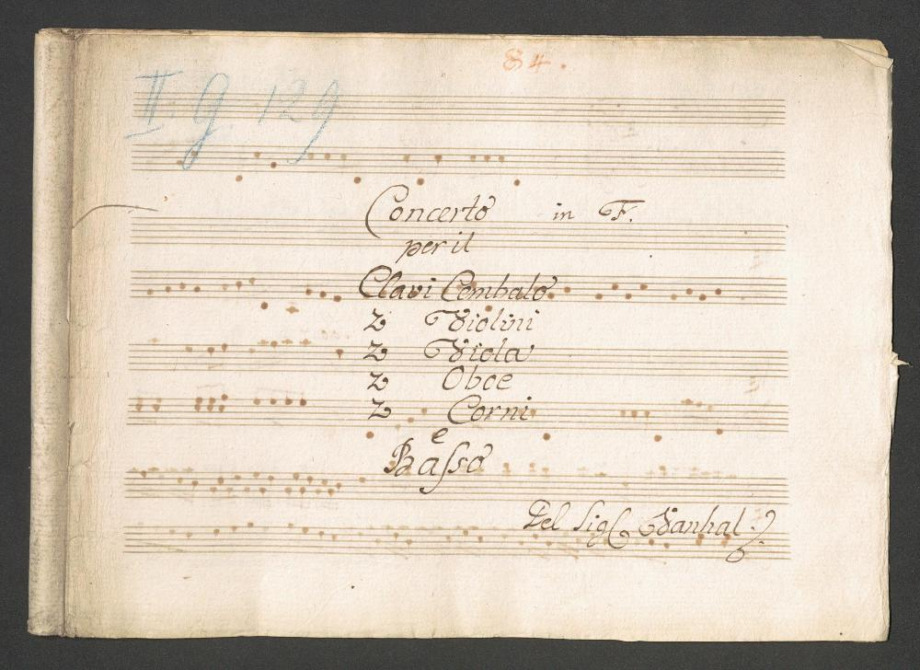 84.
II. G. 129
Concerto in F.
per il
Clavi Cembalo
2 Violini
2 Viola
2 Oboe
2 Corni
e
Basso
Del Sigl Vanhal